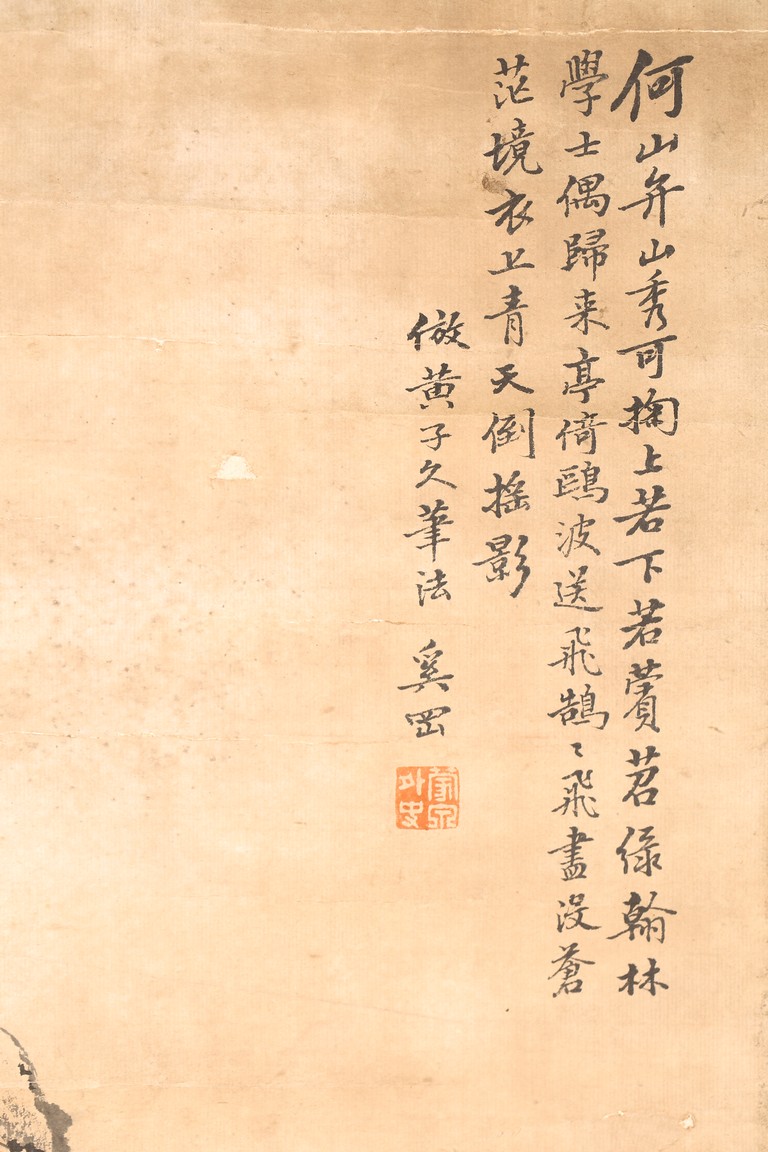 何山弁山秀可掬上若下若薲苕綠翰林
學士偶歸来亭倚鷗波送飛鵠〻飛盡没蒼
茫境衣上青天倒摇影
倣黄子久筆法 奚岡
蒙泉外史